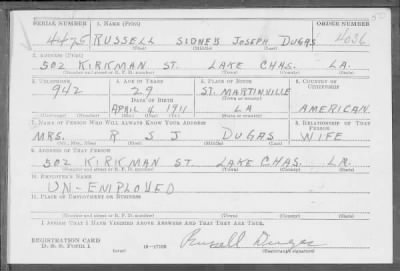 SERIAL NUMBER 1. NAME (Print) ORDER NUMBER
4475 RUSSELL SIDNEY JOSEPH DUGAS 4036
(First) (Middle) (Last)
2. ADDRESS (Print)
502 KIRKMAN ST. LAKE CHAS. LA.
(Number and street or R. F. D. number) (Town) (County) (State)
3. TELEPHONE 4. AGE IN YEARS 5. PLACE OF BIRTH 6. COUNTRY OF CITIZENSHIP
942 29 ST. MARTINVILLE
DATE OF BIRTH (Town or county)
APRIL 4 1911 LA AMERICAN
(Mo.) (Day) (Yr.) (State or country)
7. NAME OF PERSON WHO WILL ALWAYS KNOW YOUR ADDRESS 8. RELATIONSHIP OF THAT PERSON
MRS. R S J DUGAS WIFE
(Mr., Mrs., Miss) (First) (Middle) (Last)
9. ADDRESS OF THAT PERSON
502 KIRKMAN ST. LAKE CHAS. LA.
(Number and street or R. F. D. number) (Town) (County) (State)
10. EMPLOYER'S NAME
UN-EMPLOYED
11. PLACE OF EMPLOYMENT OR BUSINESS
(Number and street or R. F. D. number) (Town) (County) (State)
I AFFIRM THAT I HAVE VERIFIED ABOVE ANSWERS AND THAT THEY ARE TRUE.
REGISTRATION CARD
D. S. S. Form 1 (over) Russell Dugas
(Registrant's signature)